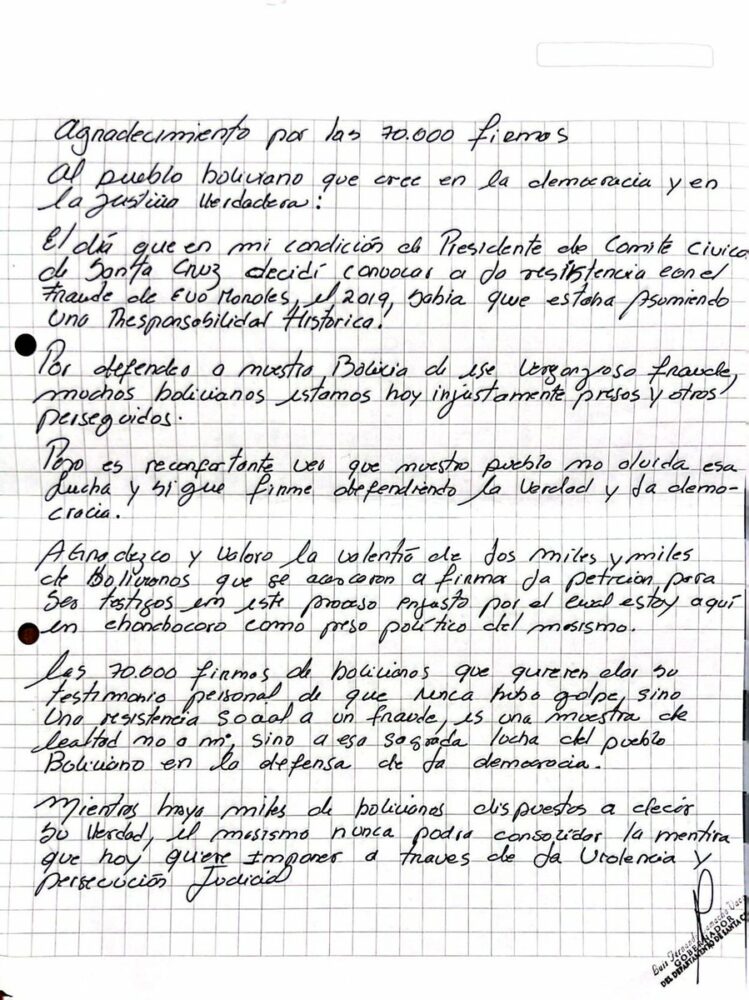 Agradecimiento por las 70.000 firmas
Al pueblo boliviano que cree en la democracia y en
la justicia verdadera:
El día que en mi condición de Presidente de Comité Civico
de Santa Cruz decidí convocar a la resistencia con el
fraude de Evo Morales, el 2019, sabia que estaba asumiendo
una Responsabilidad Historica.
Por defender a nuestra Bolivia de ese vergonzoso fraude,
muchos bolivianos estamos hoy injustamente presos y otros
perseguidos.
Pero es reconfortante ver que nuestro pueblo no olvida esa
lucha y sigue firme defendiendo la verdad y la demo-
cracia.
Agradezco y valoro la valentía de los miles y miles
de Bolivianos que se acercaron a firmar la petición para
ser testigos en este proceso injusto por el cual estoy aquí
en chonchocoro como preso político del masismo.
Las 70.000 firmas de bolivianos que quieren dar su
testimonio personal de que nunca hubo golpe, sino
una resistencia social a un fraude, es una muestra de
lealtad no a mi, sino a esa sagrada lucha del pueblo
Boliviano en la defensa de la democracia.
Mientras haya miles de bolivianos dispuestos a decir
su verdad, el masismo nunca podra consolidar la mentira
que hoy quiere imponer a traves de la violencia y
persecución Judicial
Luis Fernando Camacho Vaca
GOBERNADOR
DEL DEPARTAMENTO DE SANTA C